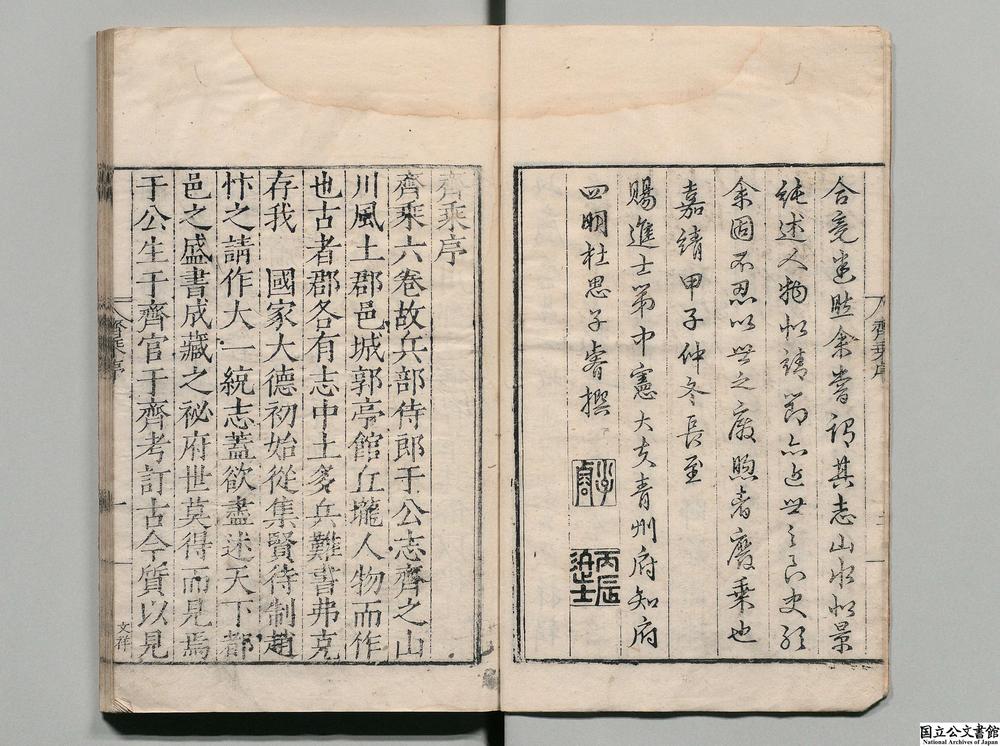 合竟迷眩余嘗謂其志山水似景
純述人物似靖節亦近世之良史顧
余固不忍以世之廢興者廢乘也
嘉靖甲子仲冬長至
賜進士第中憲大夫青州府知府
四明杜思子睿撰
子睿
丙辰進士
齊乘序
齊乘序
齊乘六卷故兵部侍郎于公志齊之山
川風土郡邑城郭亭館丘壠人物而作
也古者郡各有志中土多兵難書弗克
存我 國家大德初始從集賢待制趙
忭之請作大一統志蓋欲盡述天下都
邑之盛書成藏之祕府世莫得而見焉
于公生于齊官于齊考訂古今質以見
齊乘序
一
文祥
国立公文書館
National Archives of Japan